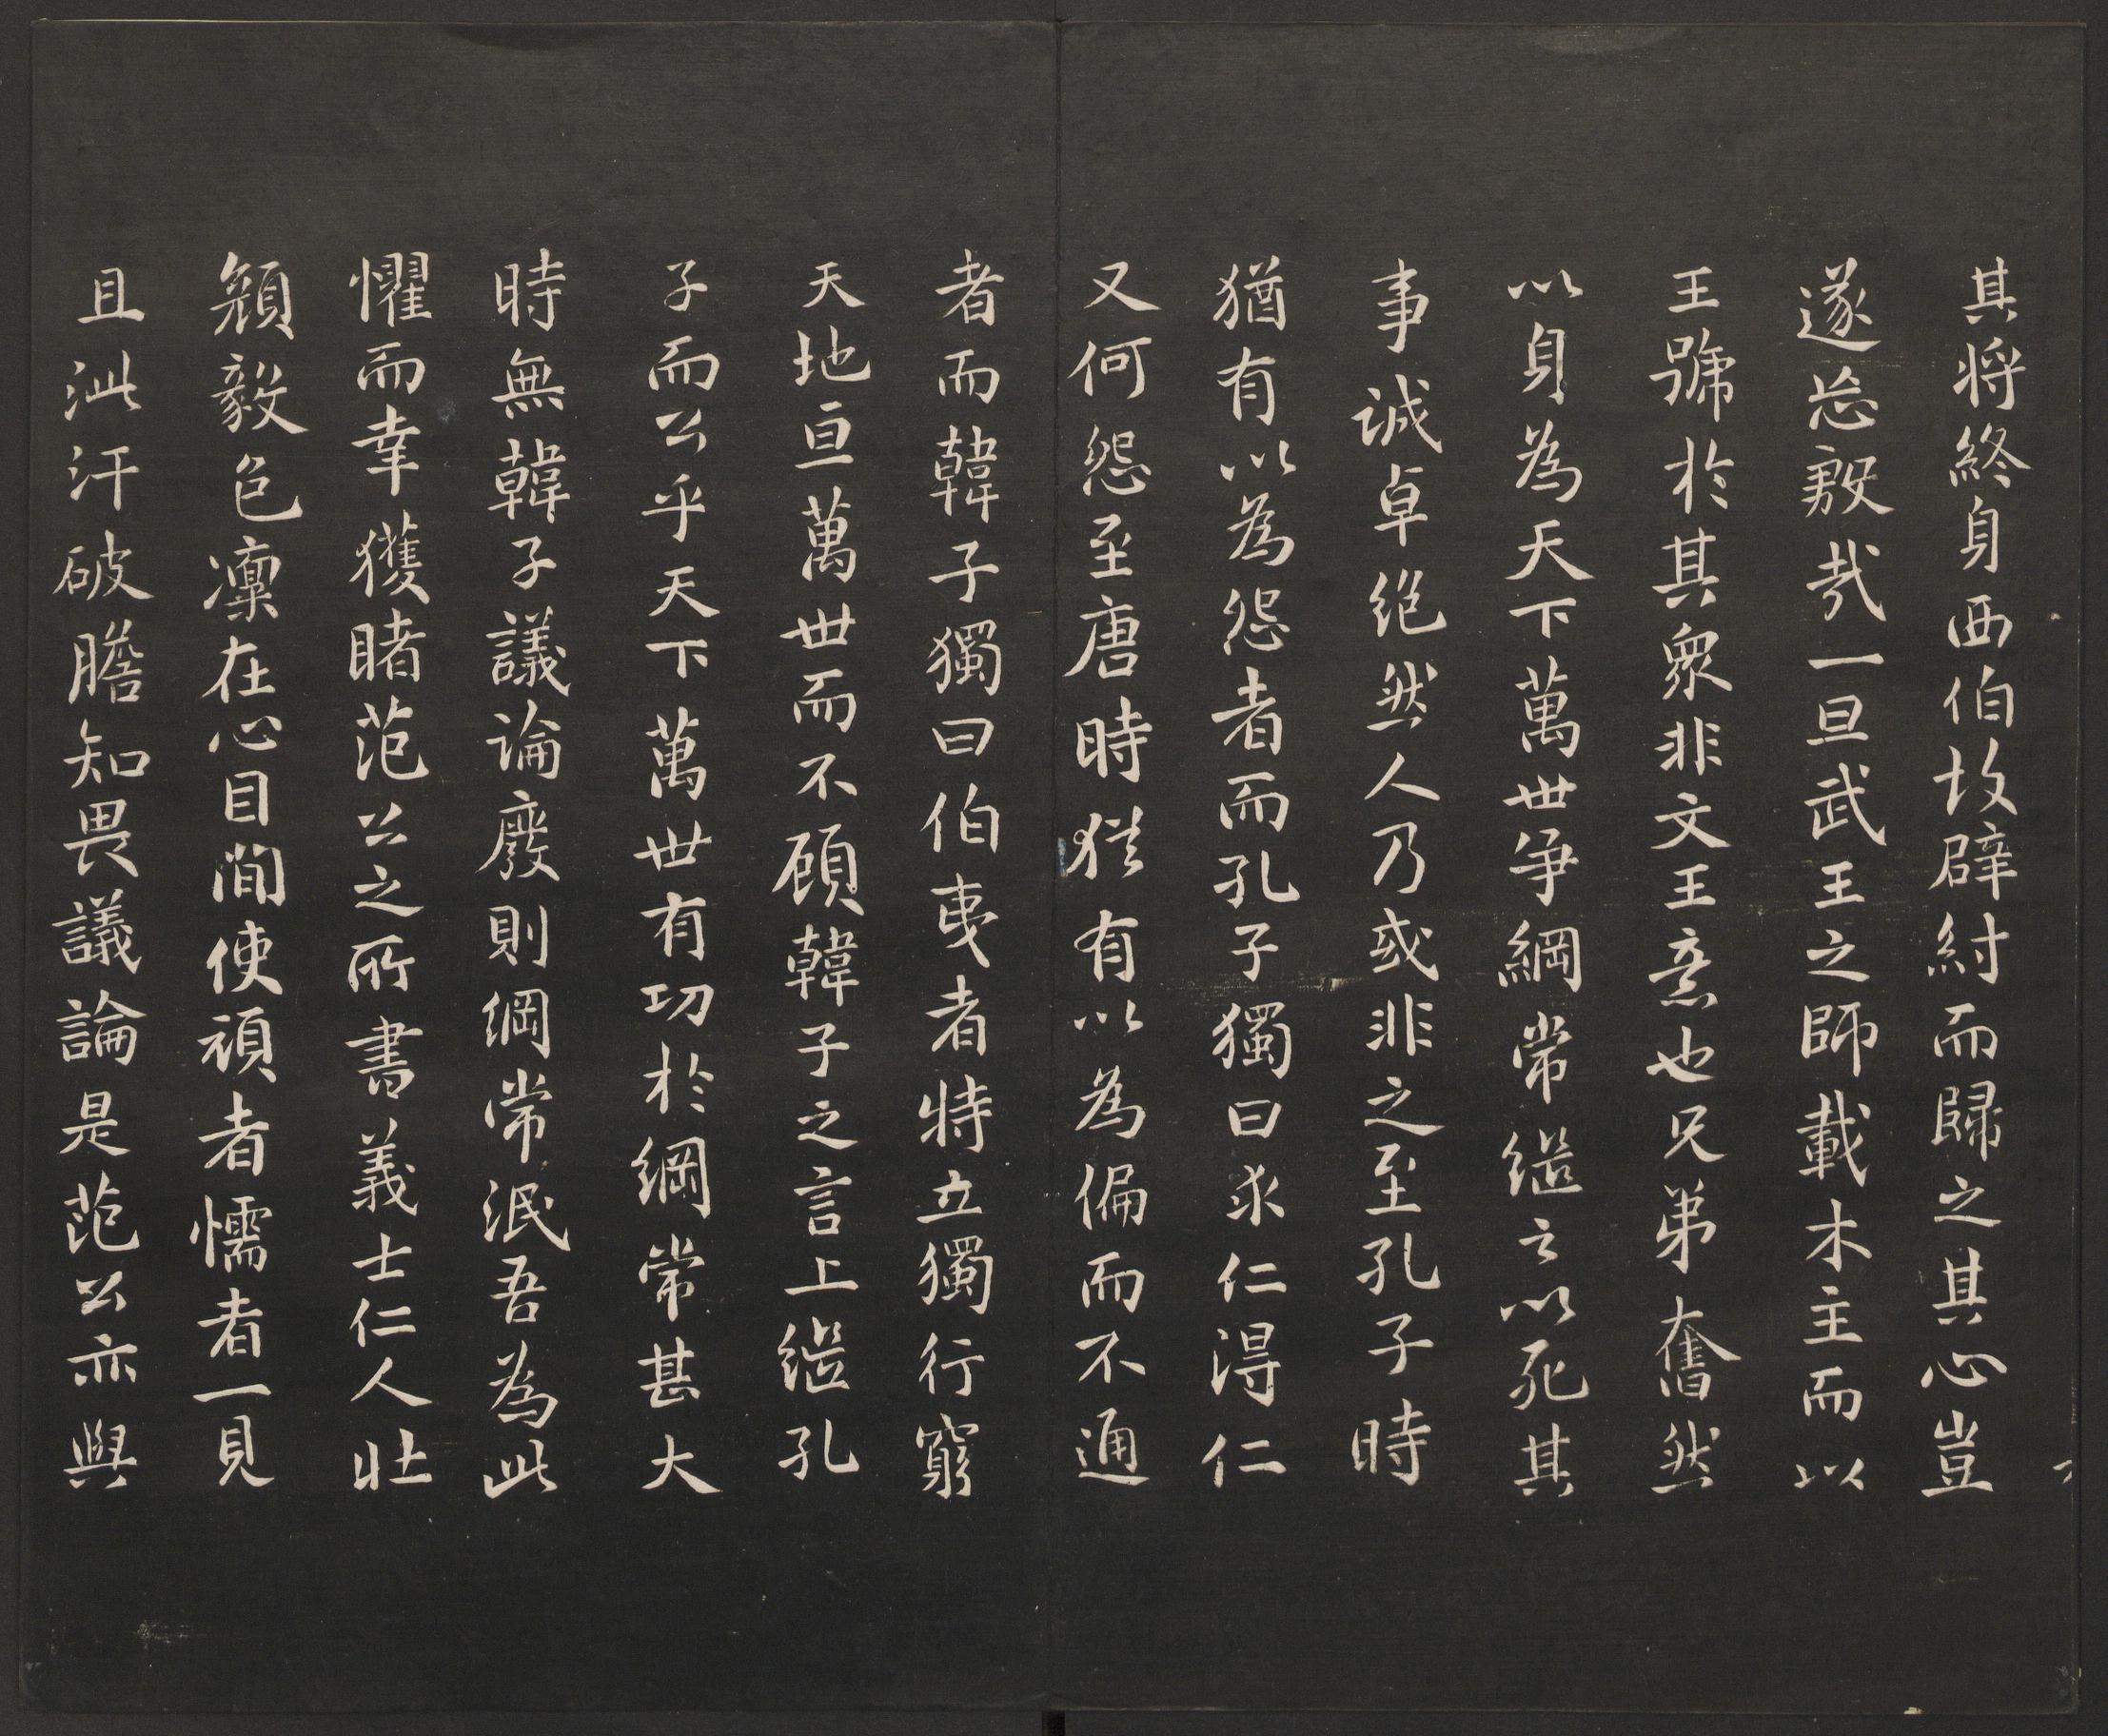 其將終身西伯故辟紂而歸之其心豈
遂忘殷哉一旦武王之師載木主而以
王號於其衆非文王意也兄弟奮然
以身為天下萬世爭綱常継之以死其
事誠卓絕然人乃或非之至孔子時
猶有以為怨者而孔子獨曰求仁得仁
又何怨至唐時猶有以為偏而不通
者而韓子獨曰伯夷者特立獨行窮
天地亘萬世而不顧韓子之言上継孔
子而公乎天下萬世有功於綱常甚大
時無韓子議論廢則綱常泯吾為此
懼而幸獲睹范公之所書義士仁人壯
顏毅色凜在心目間使頑者懦者一見
且泚汗破膽知畏議論是范公亦與